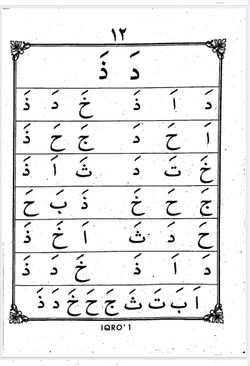 ١٢
دَ ذَ
دَ اَ ذَ خَ دَ ذَ
اَ حَ دَ جَ حَ ذَ
خَ تَ دَ ثَ اَ ذَ
جَ حَ خَ ذَ بَ حَ
حَ دَ ثَ اَ خَ ذَ
دَ اَ ذَ خَ دَ ذَ
اَ بَ تَ ثَ جَ حَ خَ دَ ذَ
IQRO' 1